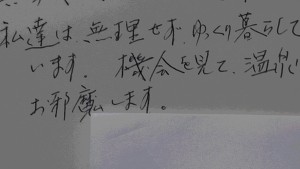 私達は無理せず、ゆっくり暮らして
います。機会を見て、温泉に
お邪魔します。